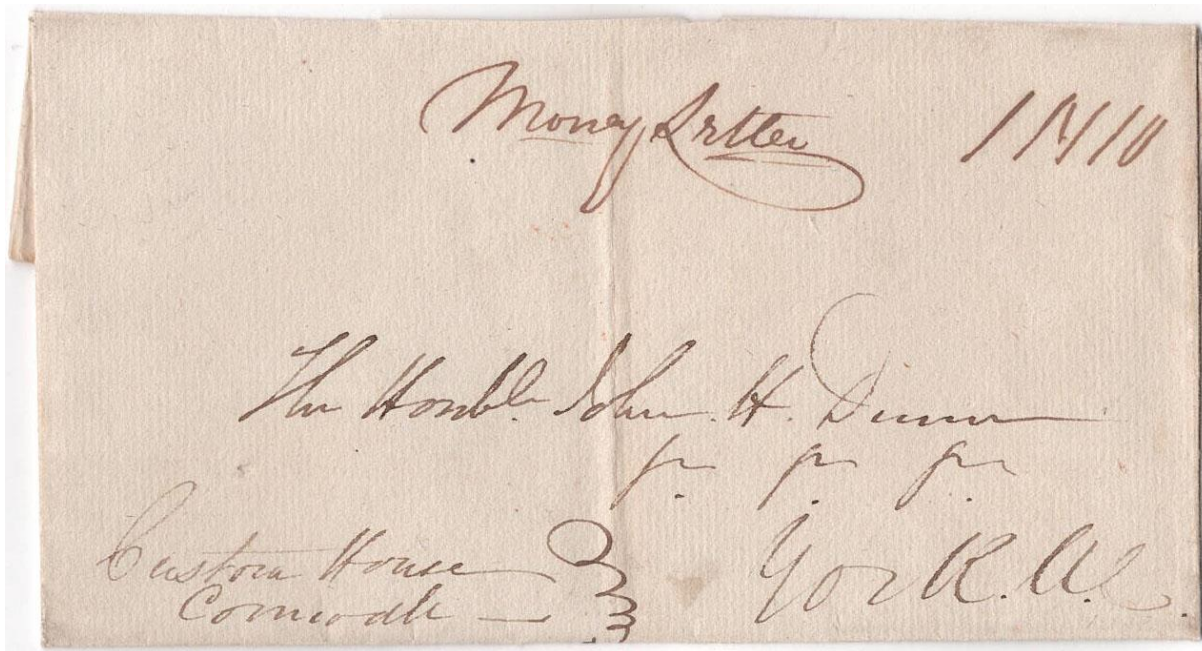 Money Letter
The Honble. John. H. Dunn
York. U.C.
Custom House
Cornwall